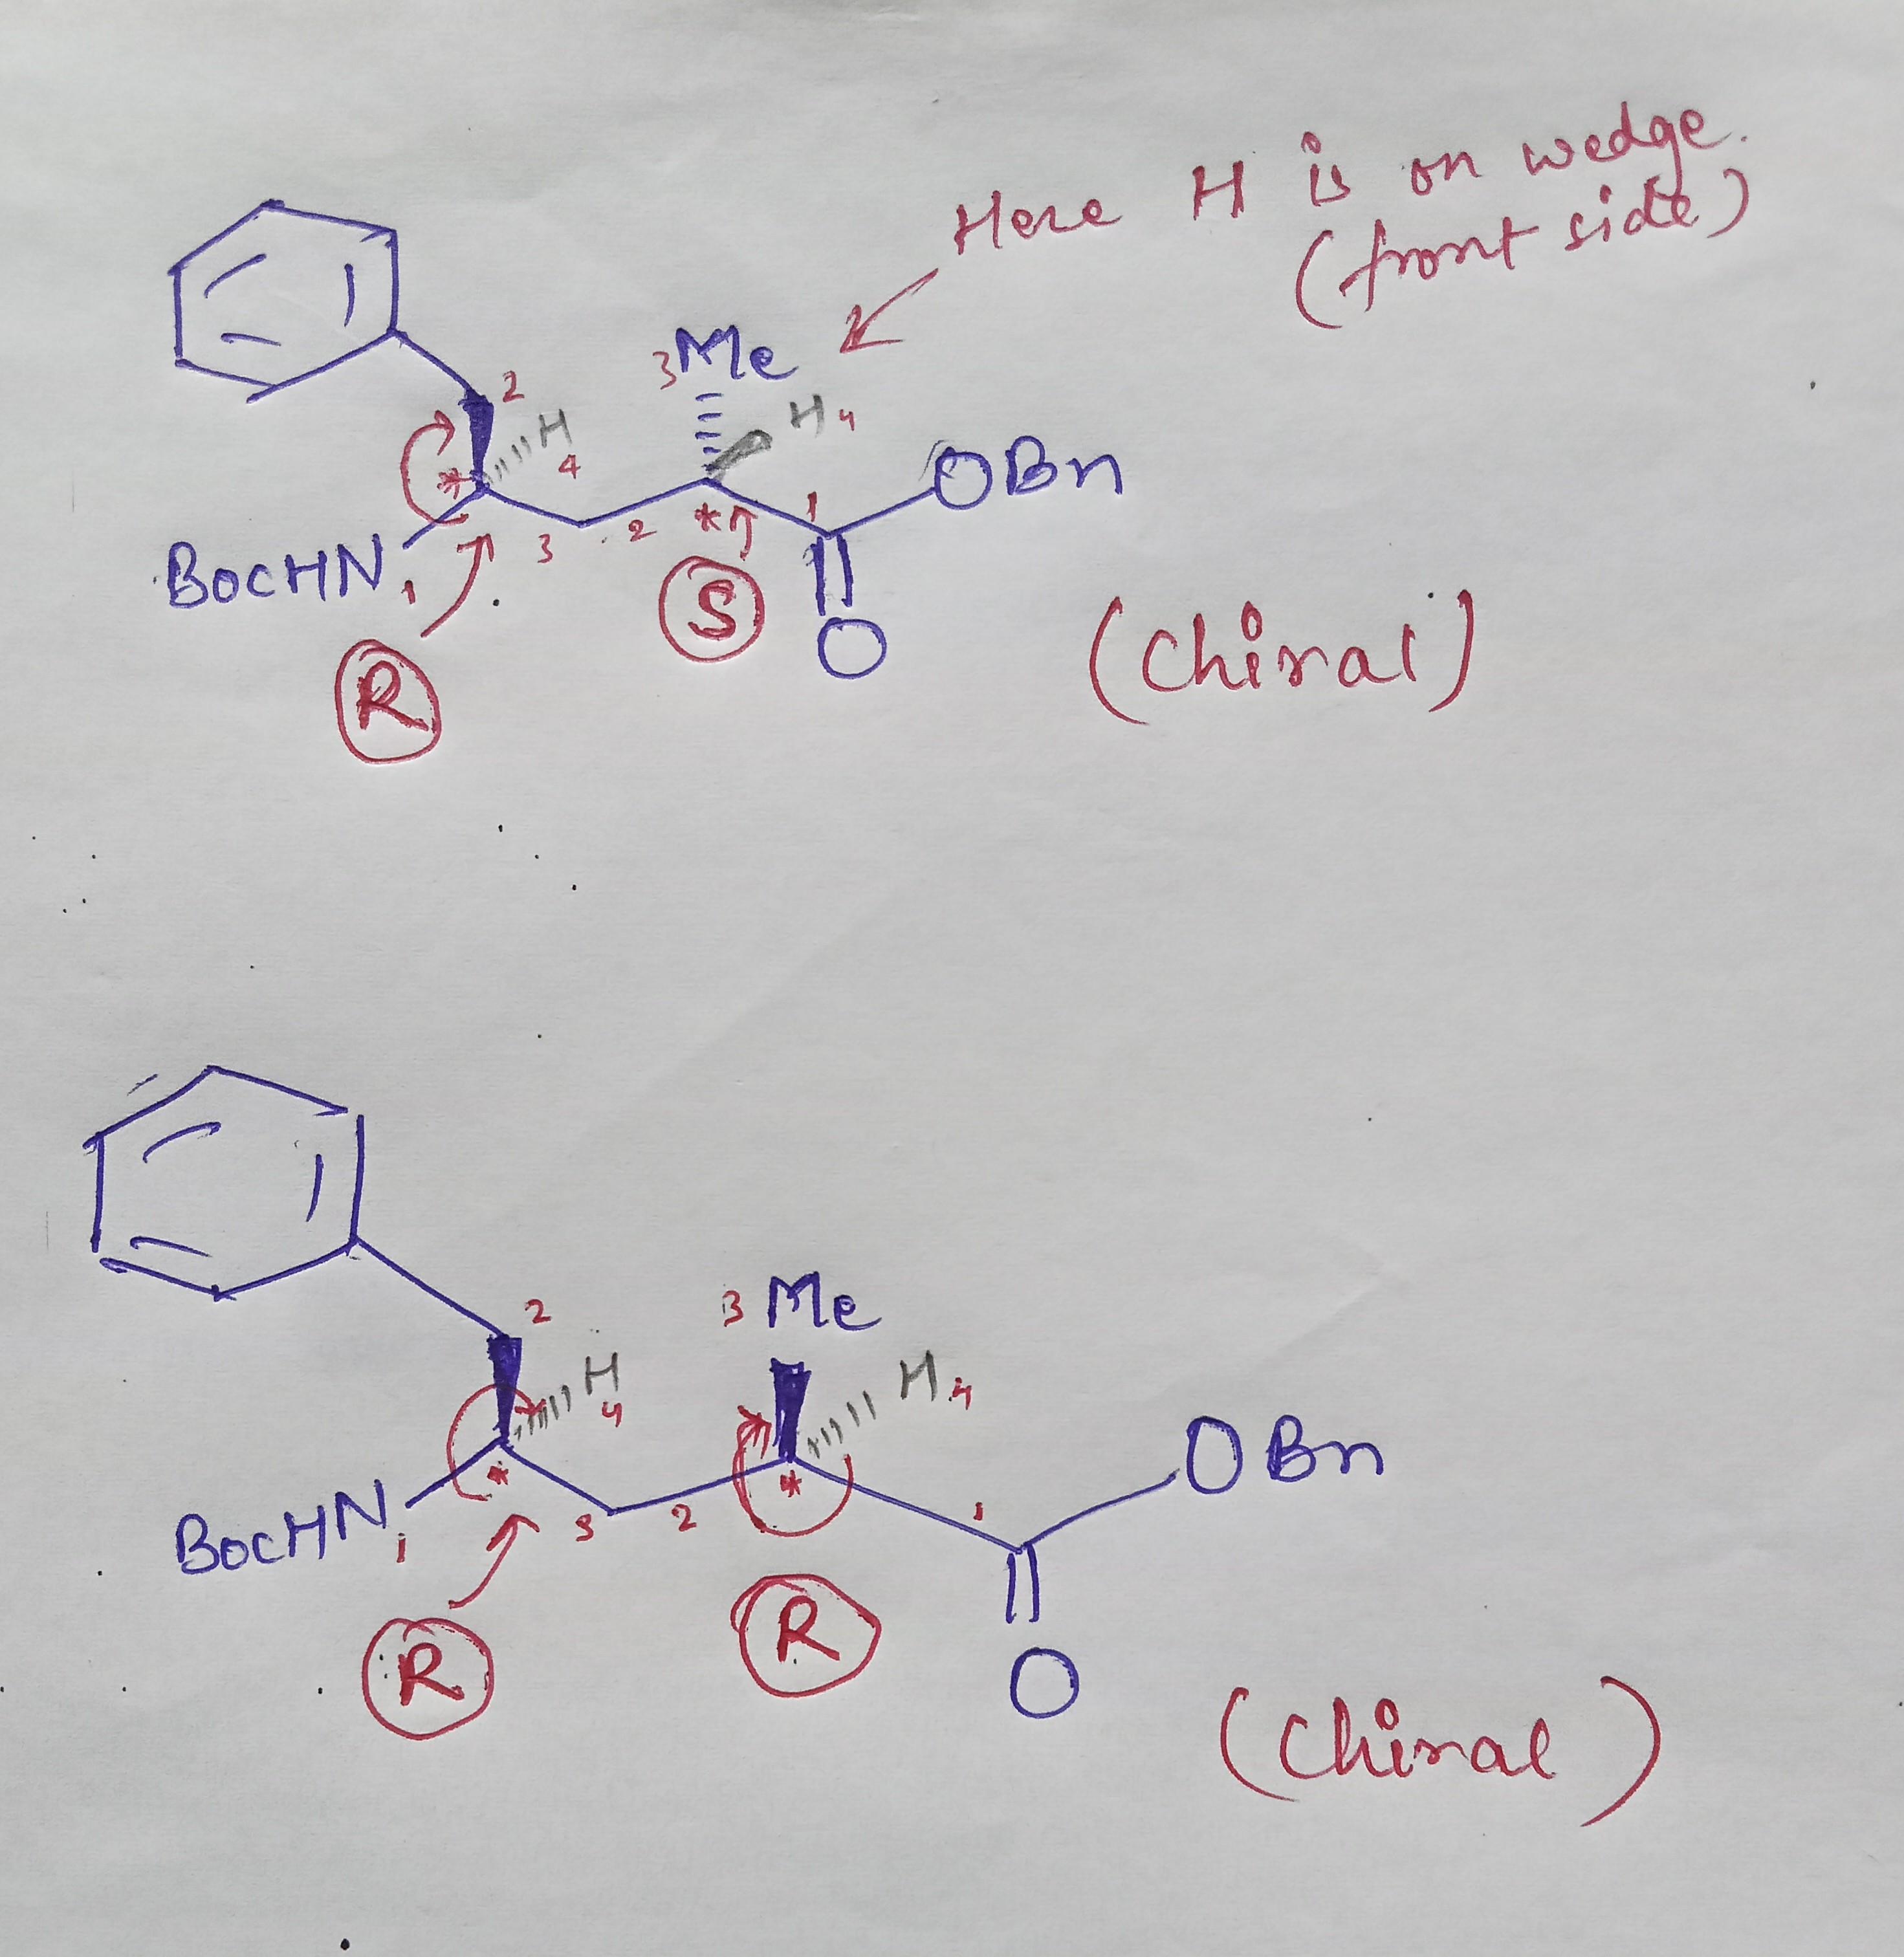 Here H is on wedge.
(front side)
3 Me
2 H H 4
* 4 OBn
3 2 * 1
BocHN 1
S O
R
(Chiral)
3 Me
2 H H 4
4
* * OBn
BocHN 1 3 2 1
R
R O
(Chiral)